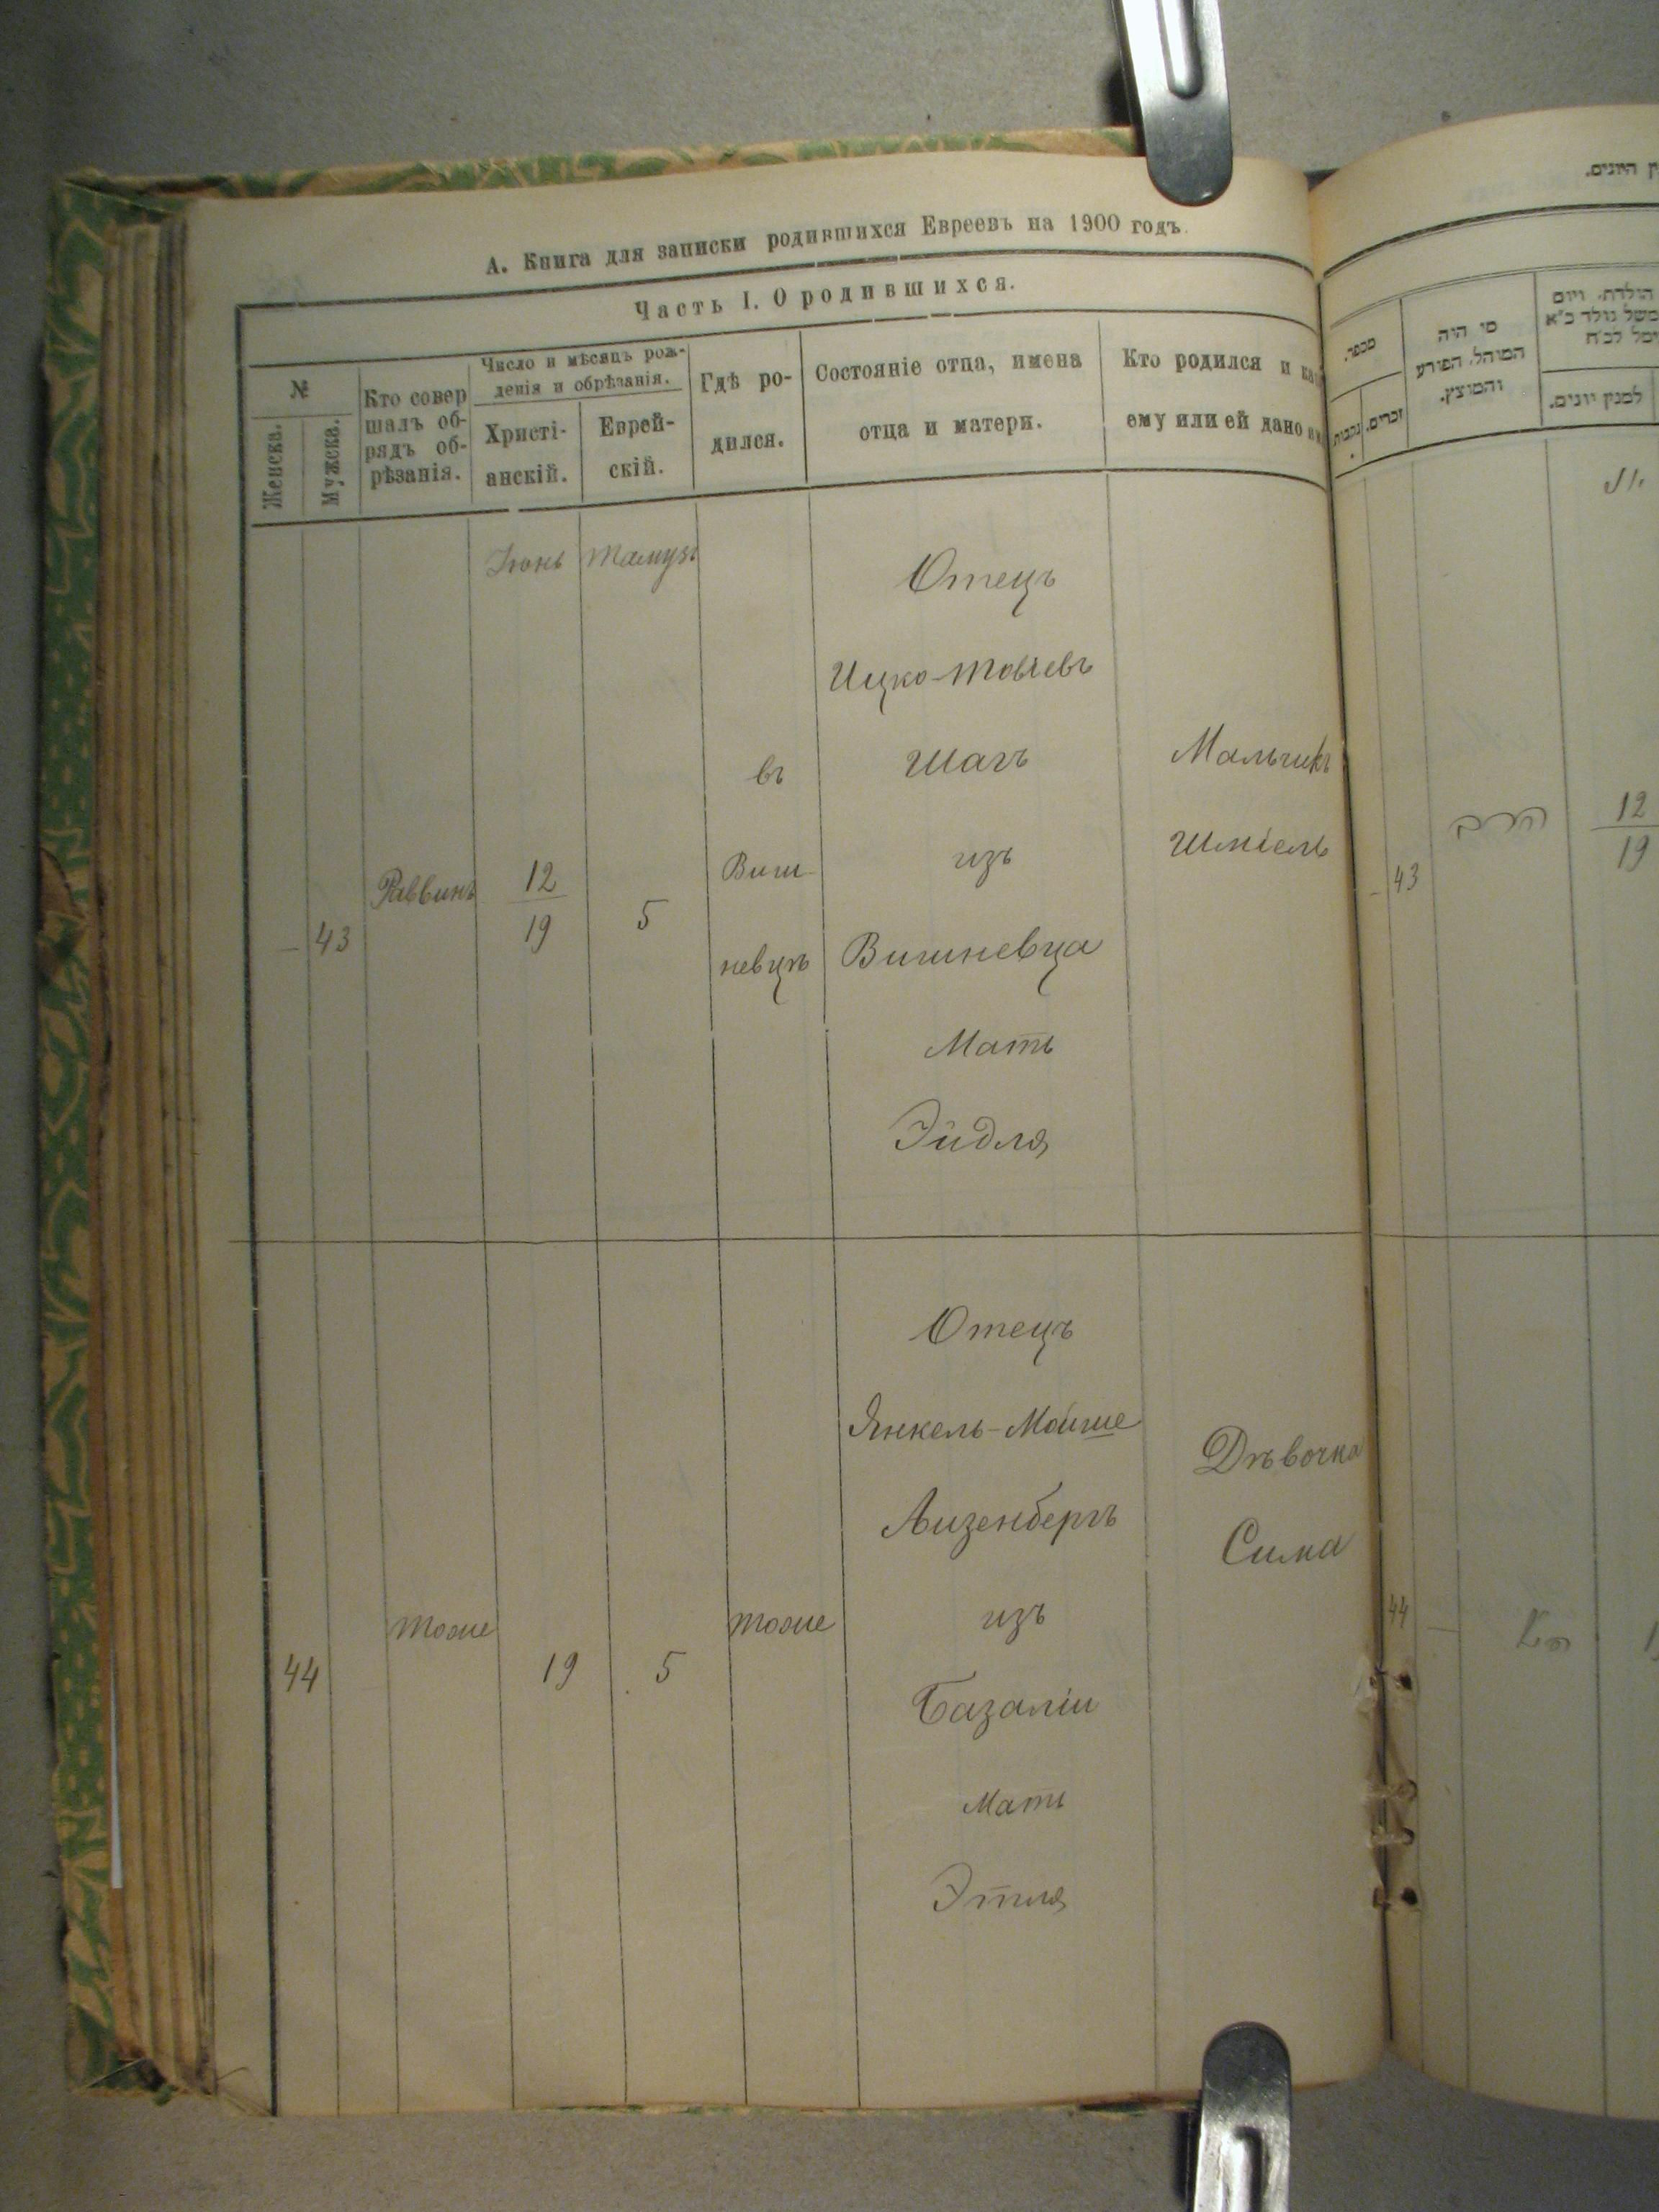 А. Книга для записки родившихся Евреевъ на 1900 годъ.
Часть I. О родившихся.
№
Женска.
Мужска.
Кто совер
шалъ об-
рядъ об-
рѣзанія.
Число и мѣсяцъ рож-
денія и обрѣзанія.
Христі-
анскій.
Еврей-
скій.
Гдѣ ро-
дился.
Состояніе отца, имена
отца и матери.
Кто родился и
ему или ей дано
Іюнь
Тамузъ
—
43
Раввинъ
12
19
5
въ
Виш-
невцѣ
Отецъ
Ицко-Товіевъ
Шагъ
изъ
Вишневца
Мать
Эйдля
Мальчикъ
Шміель
44
тоже
19
5
тоже
Отецъ
Янкель-Мойше
Айзенбергъ
изъ
Базаліи
Мать
Этля
Дѣвочка
Сима
מספר.
נקבות
זכרים.
מי היה
המוהל, הפורע
והמוצץ.
הולדת, ויום
למנין יונים.
—
43
הרב
12
19
44
—